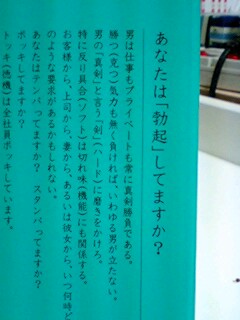 あなたは「勃起」してますか?
男は仕事もプライベートも常に真剣勝負である。
勝つ(克つ)気力も無く負ければ、いわゆる男が立たない。
男の「真剣」と言う「剣」(ハード)に磨きをかけろ。
特に反り具合(ソフト)は切れ味(機能)にも関係する。
お客様から、上司から、妻から、あるいは彼女から、いつ何時ど
のような要求があるかもしれない。
あなたはテンパってますか? スタンバってますか?
ボッキしてますか?
トッキ(徳機)は全社員ボッキしています。